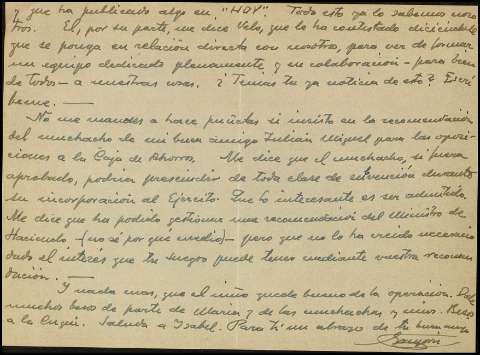 y que ha publicado algo en "HOY" Todo esto ya lo sabemos noso
tros. El, por su parte, me dice Velo, que lo ha contestado diciéndole
que se ponga en relación directa con nosotros, para ver de formar
un equipo dedicado plenamente y en colaboración - para bien
de todos - a nuestras cosas. ¿Tenías tu ya noticia de esto? Escri
beme. —
No me mandes a hacer puñetas si insisto en la recomendación
del muchacho de mi buen amigo Julián Miguel para las oposi-
ciones a la Caja de Ahorro. Me dice que el muchacho, si fuera
aprobado, podría prescindir de toda clase de durante
su incorporación al Ejercito. Lo interesante es ser admitido.
Me dice que ha podido gestionar una recomendación del Ministro de
Hacienda - (no sé por qué medio) - pero que no lo ha creido necesario
dado el interés que tu suegro puede tener mediante vuestra recomen
dación. —
Y nada mas, que el niño quedó bueno de la operación. Dale
muchos besos de parte de Maria y de las muchachas y mios. Beso
a la . Saluda a Isabel. Para ti un abrazo de tu hermano